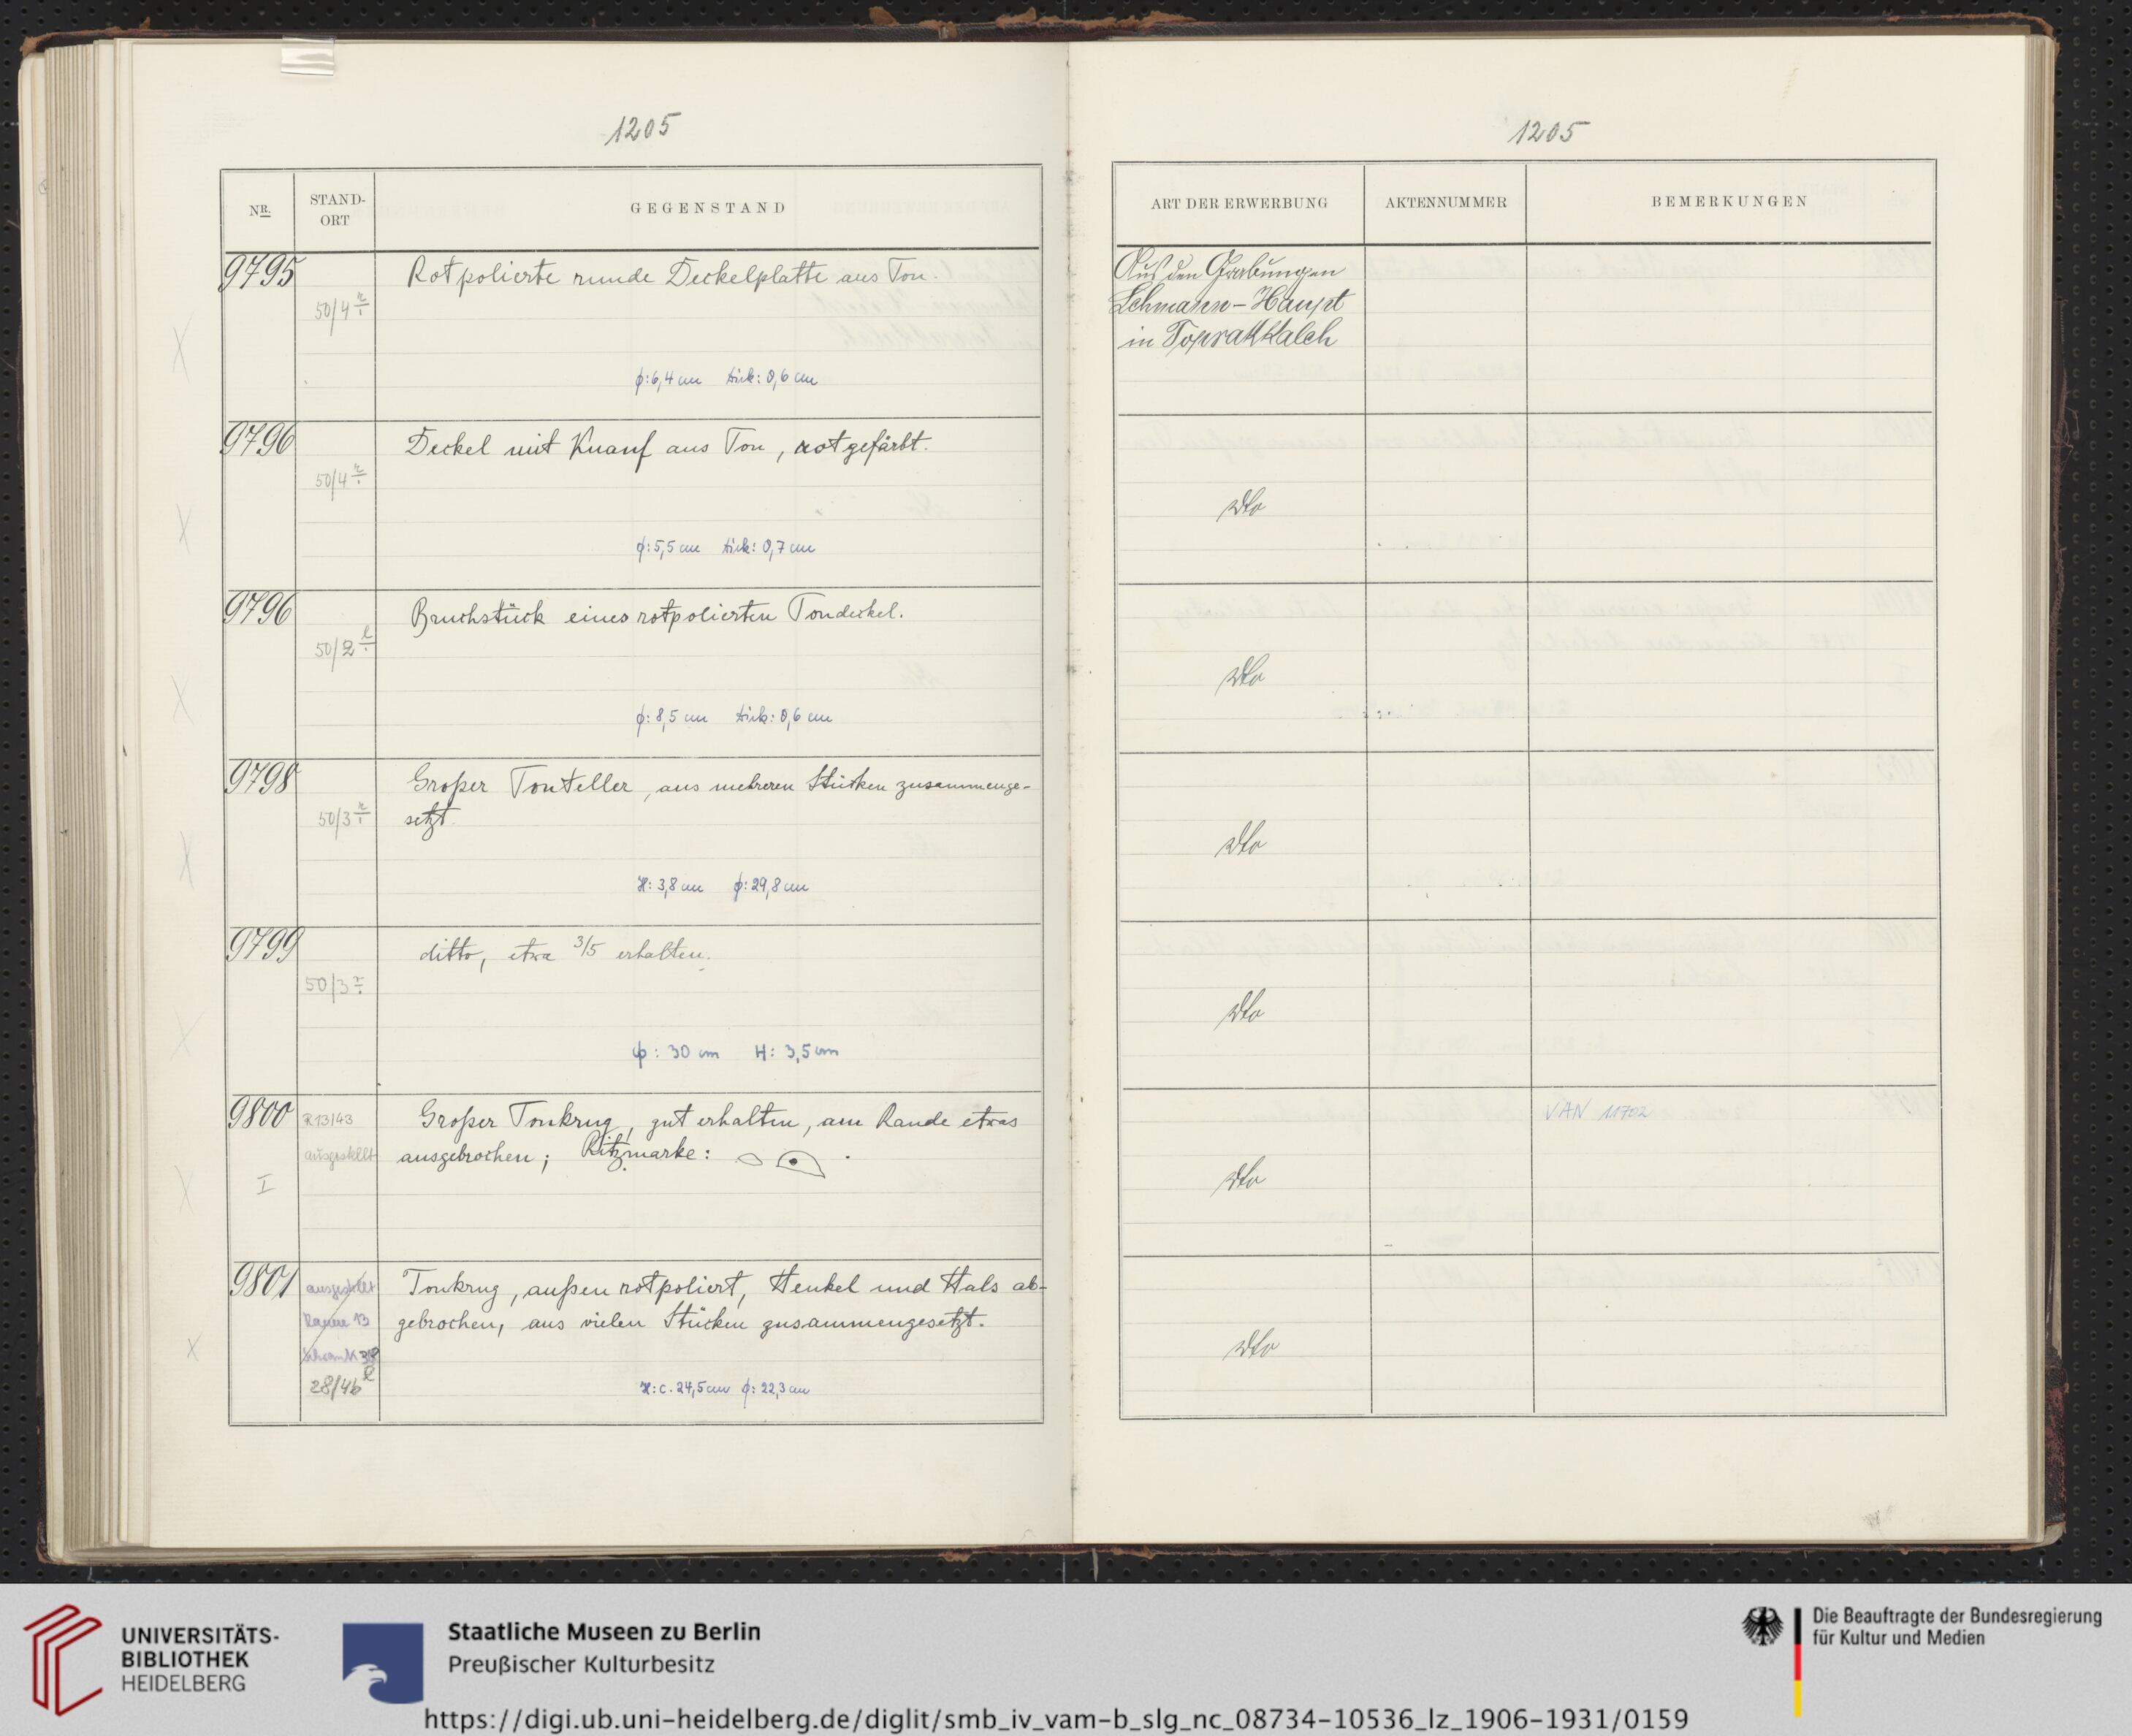 1205
NR.
STAND-
ORT
GEGENSTAND
9795
50/4
Rotpolierte runde Deckelplatte aus Ton.
φ: 6,4 cm Dick: 0,6 cm
9796
50/4
Deckel mit Knauf aus Ton, rotgefärbt.
φ: 5,5 cm Dick: 0,7 cm
9796
50/2
Bruchstück eines rotpolierten Tondeckel.
φ: 8,5 cm Dick: 0,6 cm
9798
50/3
Großer Tonteller, aus mehreren Stücken zusammenge-
setzt.
H: 3,8 cm φ: 29,8 cm
9799
50/3
ditto, etwa 3/5 erhalten.
φ: 30 cm H: 3,5 cm
9800
R13/43
ausgestellt
I
Großer Tonkrug, gut erhalten, am Rande etwas
ausgebrochen; Ritzmarke:
9801
ausgestellt
Raum 13
Schrank 38
28/4b
Tonkrug, außen rotpoliert, Henkel und Hals ab-
gebrochen, aus vielen Stücken zusammengesetzt.
H: c. 24,5 cm φ: 22,3 cm
1205
ART DER ERWERBUNG
AKTENNUMMER
BEMERKUNGEN
Aus den Grabungen
Lehmann-Haupt
in Toprakkaleh
dto
dto
dto
dto
VAN 11702
dto
dto
UNIVERSITÄTS-
BIBLIOTHEK
HEIDELBERG
Staatliche Museen zu Berlin
Preußischer Kulturbesitz
Die Beauftragte der Bundesregierung
für Kultur und Medien
https://digi.ub.uni-heidelberg.de/diglit/smb_iv_vam-b_slg_nc_08734-10536_lz_1906-1931/0159